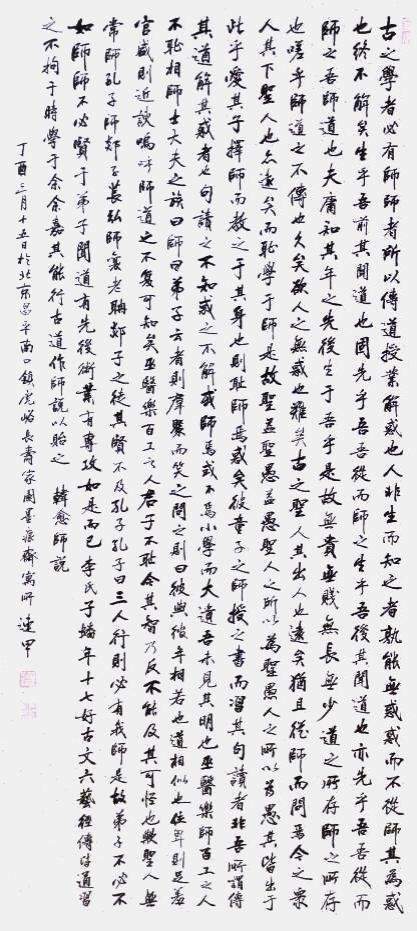 古之學者必有師師者所以傳道授業解惑也人非生而知之者孰能無惑惑而不從師其為惑
也終不解矣生乎吾前其聞道也固先乎吾吾從而師之生乎吾後其聞道也亦先乎吾吾從而
師之吾師道也夫庸知其年之先後生于吾乎是故無貴無賤無長無少道之所存師之所存
也嗟乎師道之不傳也久矣欲人之無惑也難矣古之聖人其出人也遠矣猶且從師而問焉今之衆
人其下聖人也亦遠矣而恥學于師是故聖益聖愚益愚聖人之所以為聖愚人之所以為愚其皆出于
此乎愛其子擇師而教之于其身也則恥師焉惑矣彼童子之師授之書而習其句讀者非吾所謂傳
其道解其惑者也句讀之不知惑之不解或師焉或不焉小學而大遺吾未見其明也巫醫樂師百工之人
不恥相師士大夫之族曰師曰弟子云者則羣聚而笑之問之則曰彼與彼年相若也道相似也位卑則足羞
官盛則近諛嗚呼師道之不復可知矣巫醫樂百工之人君子不恥今其智乃反不能及其可怪也歟聖人無
常師孔子師郯子萇弘師襄老聃郯子之徒其賢不及孔子孔子曰三人行則必有我師是故弟子不必不
如師師不必賢于弟子聞道有先後術業有專攻如是而已李氏子蟠年十七好古文六藝經傳皆通習
之不拘于時學于余余嘉其能行古道作師說以貽之 韓愈師說
丁酉三月十五日於北京昌平南口鎮虎峪長壽家園墨痕齋寓所 達甲